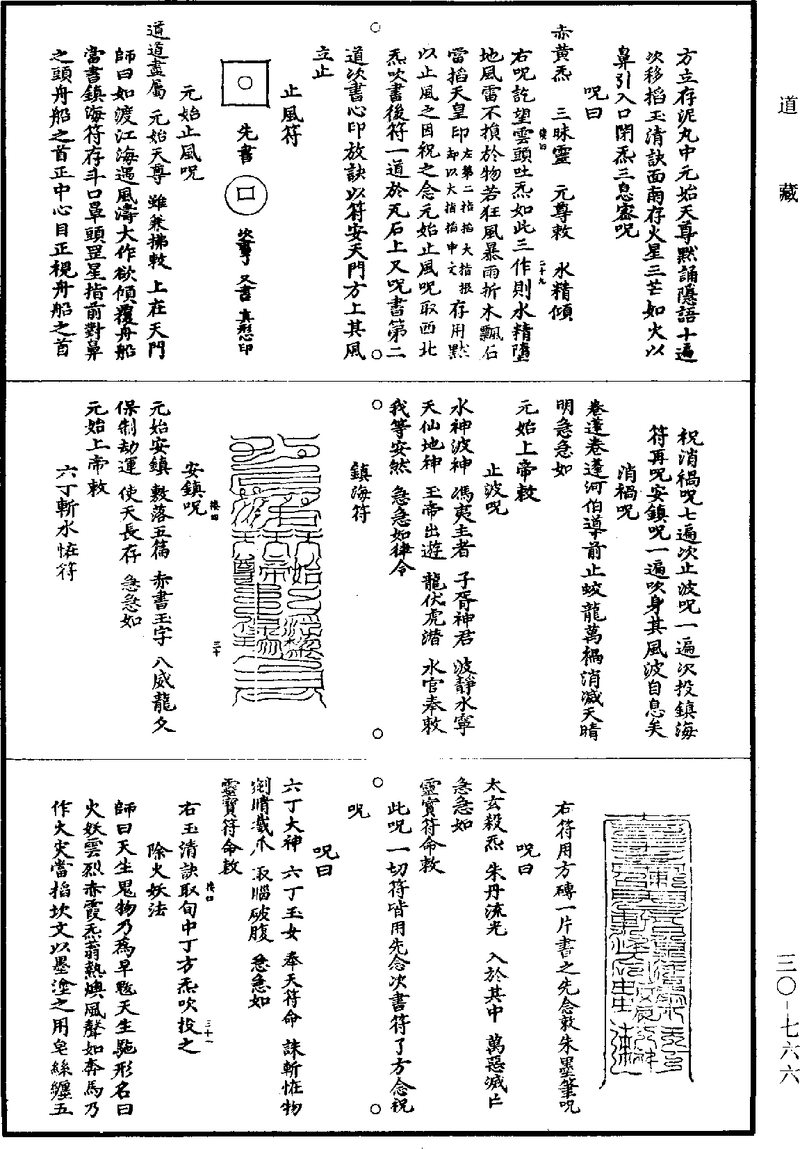 道藏
方立存泥丸中元始天尊默誦隱語十遍
次移掐玉清訣面南存火星三芒如火以
鼻引入口閉炁三息密呪
呪曰
赤黃炁　三昧靈　元尊敕　水精傾
右呪訖望雲頭吐炁如此三作則水精墮
地風雷不損於物若狂風暴雨折木飄石
當掐天皇印左第二指掐大指根却以大指掐中文存用默
以止風之因祝之念元始止風呪取西北
炁吹書後符一道於瓦石上又呪書第二
道次書心印放訣以符安天門方上其風
立止
止風符
先書
次書了又書真形心印
元始止風呪
道道盡屬　元始天尊　雖兼拂敕　上在天門
師曰如渡江海遇風濤大作欲傾覆舟船
當書鎮海符存斗口罩頭罡星指前對鼻
之頭舟船之首正中心目正視舟船之首
祝消禍呪七遍次止波呪一遍次投鎮海
符再呪安鎮呪一遍吹身其風波自息矣
消禍呪
卷蓬卷蓬河伯導前止蛟龍萬禍消滅天晴
明急急如
元始上帝敕
止波呪
水神波神　馮夷主者　子胥神君　波靜水寧
天仙地神　玉帝出遊　龍伏虎潛　水官奉敕
我等安然　急急如律令
鎮海符
安鎮呪
元始安鎮　敷落五篇　赤書玉字　八威龍文
保制劫運　使天長存　急急如
元始上帝敕
六丁斬水怪符
右符用方磚一片書之先念敕朱墨筆呪
呪曰
太玄殺炁　朱丹流光　入於其中　萬惡滅亡
急急如
靈寶符命敕
此呪一切符皆用先念次書符了方念祝
呪
呪曰
六丁大神　六丁玉女　奉天符命　誅斬怪物
剜睛截爪　取腦破腹　急急如
靈寶符命敕
右玉清訣取旬中丁方炁吹投之
除火妖法
師曰天生鬼物乃為旱魃天生馳形名曰
火妖雲烈赤霞炁蓊熱燠風聲如奔馬乃
作火災當掐坎文以墨塗之用皂絲纏五
三〇－七六六